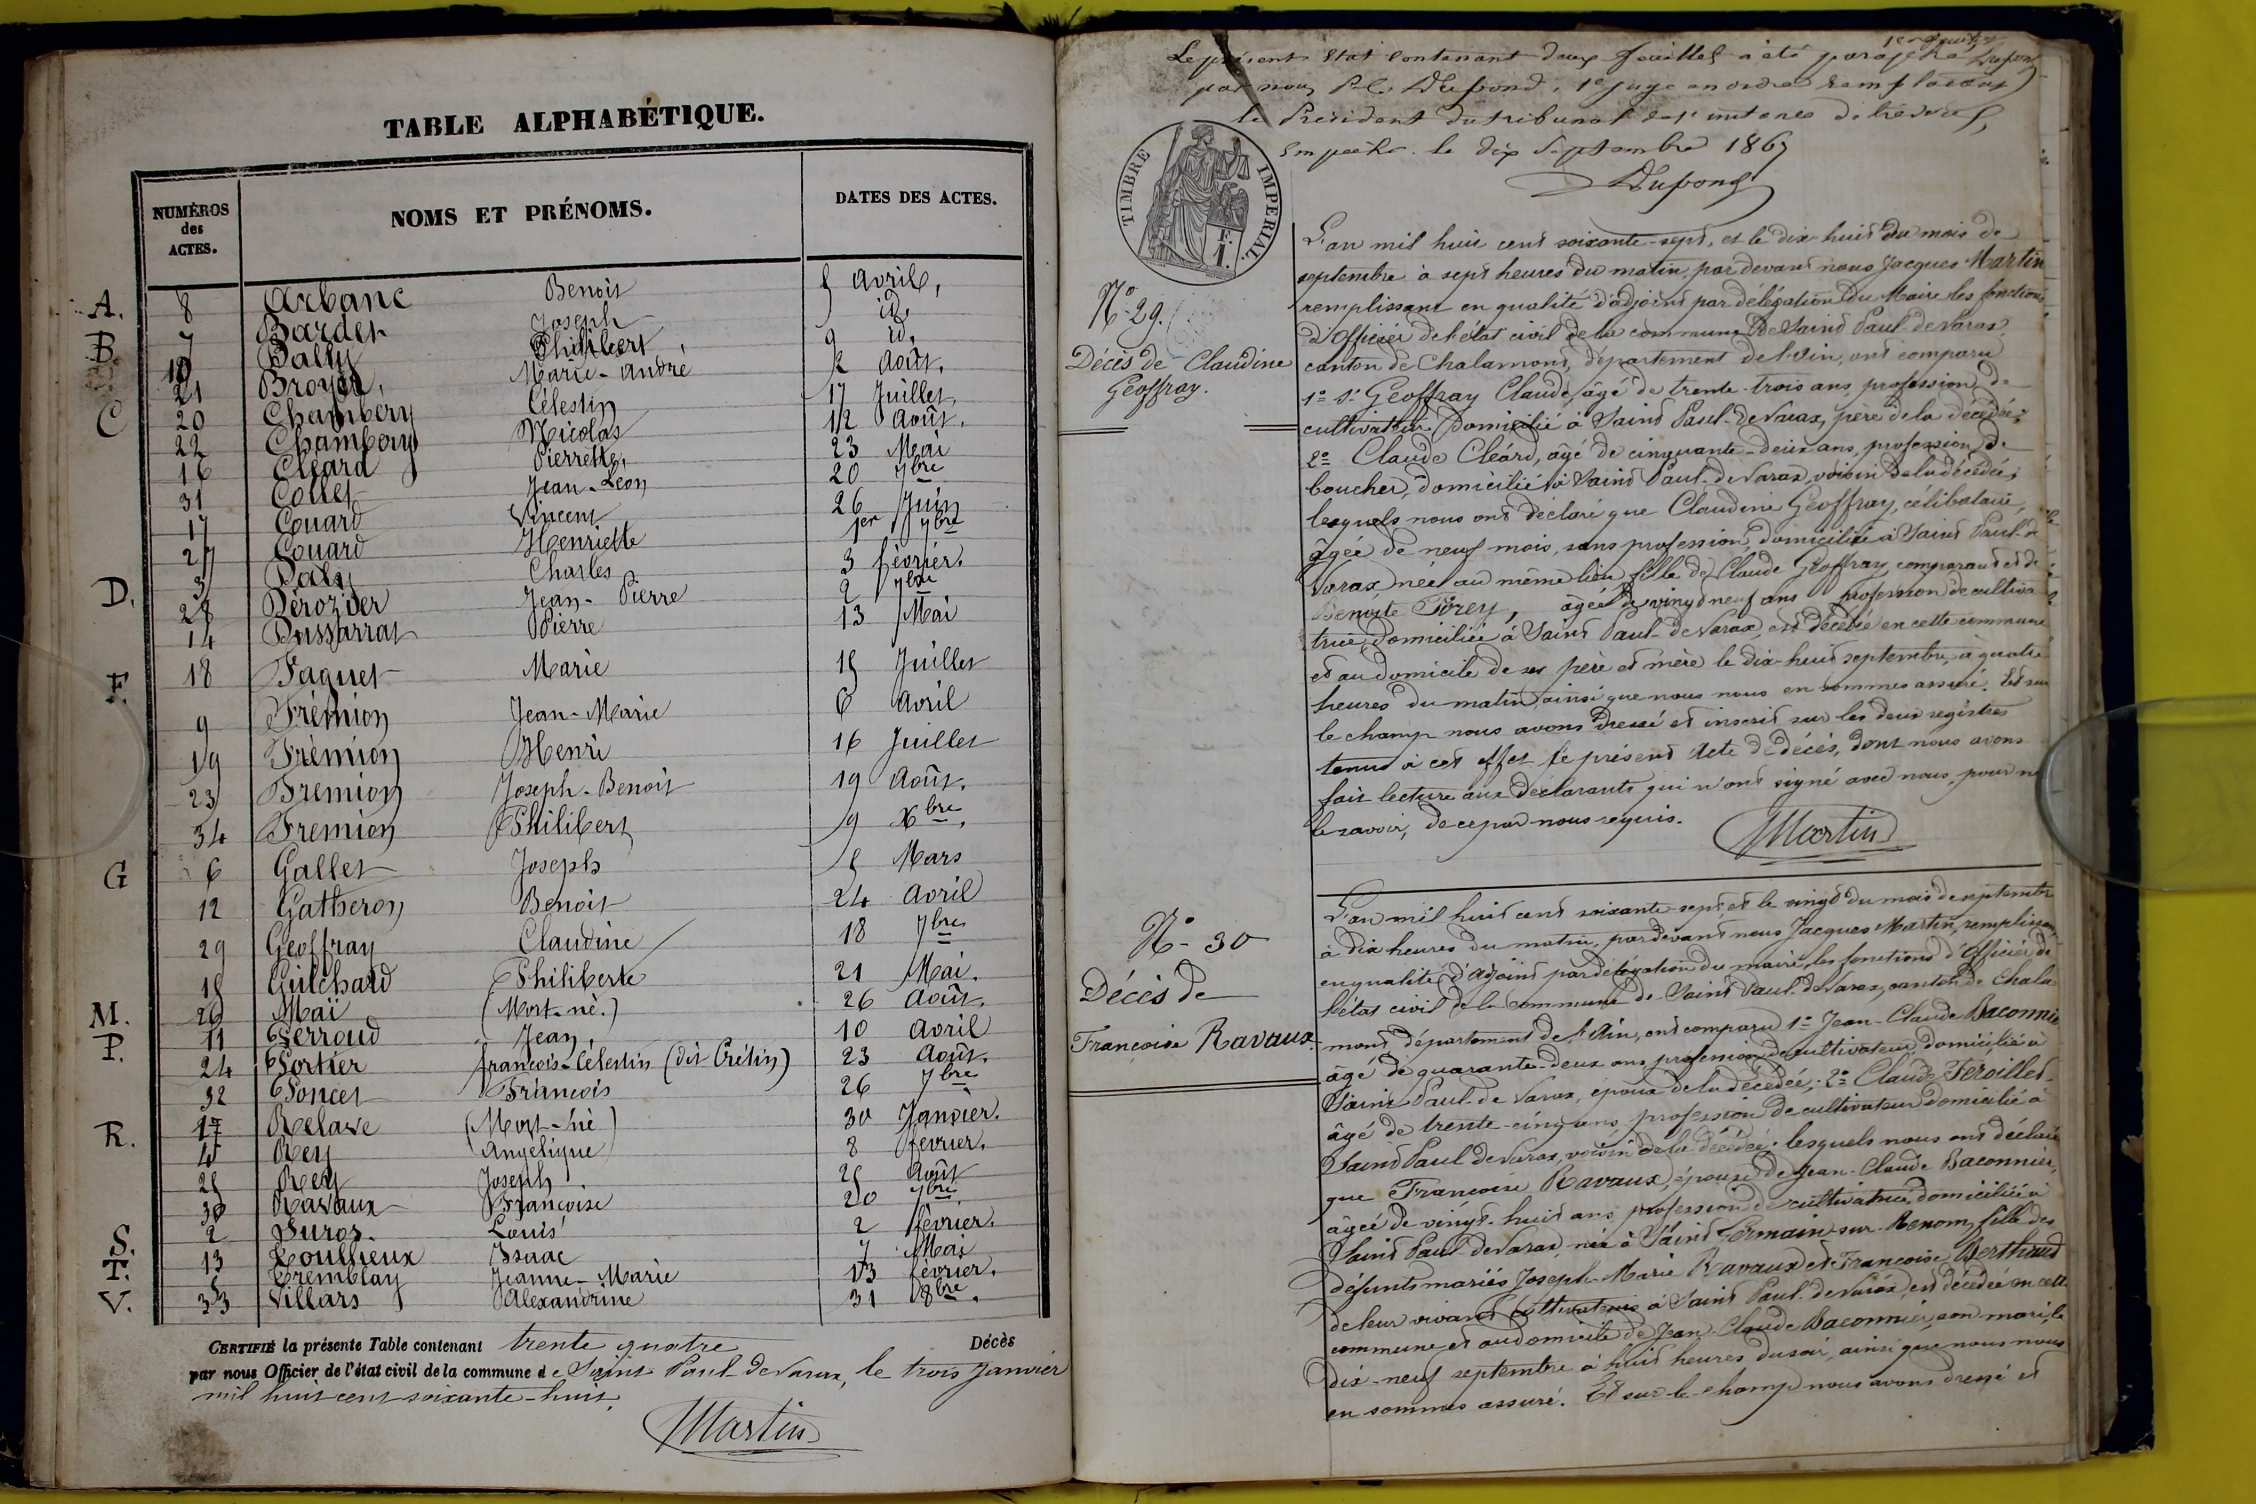 TABLE ALPHABÉTIQUE.
NUMÉROS des ACTES. NOMS ET PRÉNOMS. DATES DES ACTES.
A. 8 Arbanc Benoit 5 avril,
B. 7 Bardet Joseph id.
10 Bally Philibert 9 id.
21 Broyer, Marie-André 2 Août.
C 20 Chambéry Célestin 17 Juillet,
22 Chambéry Nicolas 12 Août.
16 Cléard Pierrette, 23 Mai
31 Collet Jean-Léon 20 7bre
17 Couard Vincent 26 Juin
27 Couard Henriette 1er 7bre
D. 3 Daly Charles 3 février.
28 Dérozier Jean-Pierre 2 7bre
14 Dussarrat Pierre 13 Mai
F. 18 Faguet Marie 15 Juillet
9 Frémion Jean-Marie 6 avril
19 Frémion Henri 16 Juillet
23 Frémion Joseph-Benoit 19 Août.
34 Fremion Philibert 9 Xbre.
G 6 Gallet Joseph 5 Mars
12 Gatheron Benoit 24 avril
29 Geoffray Claudine 18 7bre
15 Guichard Philiberte 21 Mai.
M. 26 Maï (Mort-né.) 26 Août.
P. 11 Perroud Jean, 10 Avril
24 Portier françois-Célestin (dit Crétin) 23 Août.
32 Poncet François 26 7bre
R. 1 Relave (Mort-né) 30 Janvier.
4 Rey Angélique 8 février.
25 Rey Joseph 25 Août
30 Ravaux Françoise 20 7bre
S. 2 Suros. Louis 2 février.
T. 13 Toullieux Isaac 7 Mai
5 Tremblay Jeanne-Marie 13 février.
V. 33 Villars Alexandrine 31 8bre.
CERTIFIÉ la présente Table contenant trente quatre Décès
par nous Officier de l'état civil de la commune de Saint Paul-de Varax, le trois Janvier
mil huit cent soixante-huit.
Martin
Le présent Etat contenant deux feuilles a été paraphé
par nous Dupond, 1er juge en ordre remplaçant
le Président du tribunal de 1ere instance de Trévoux,
empêché. le dix Septembre 1867
Dupond
TIMBRE IMPÉRIAL.
F. 1.
No. 29.
Décès de Claudine
Geoffray.
L'an mil huit cent soixante-sept, et le dix-huit du mois de
septembre à sept heures du matin, par devant nous Jacques Martin
remplissant en qualité d'adjoint par délégation du Maire les fonctions
d'Officier de l'état civil de la commune de Saint Paul-de Varax,
canton de Chalamont, département de l'Ain, ont comparu
1° St Geoffray Claude, âgé de trente-trois ans, profession de
cultivateur, domicilié à Saint Paul-de Varax, père de la décédée;
2° Claude Cléard, âgé de cinquante-deux ans, profession de
boucher, domicilié à Saint Paul-de Varax, voisin de la décédée;
lesquels nous ont déclaré que Claudine Geoffray, célibataire,
âgée de neuf mois, sans profession, domiciliée à Saint Paul-de
Varax, née au même lieu, fille de Claude Geoffray, comparant et de
Benoîte Forey, âgée de vingt neuf ans profession de cultiva
trice, domiciliée à Saint Paul-de Varax, est décédée en cette commune
et au domicile de ses père et mère le dix-huit septembre, à quatre
heures du matin, ainsi que nous nous en sommes assuré. Et sur
le champ nous avons dressé et inscrit sur les deux registres
tenus à cet effet le présent Acte de décès, dont nous avons
fait lecture aux déclarants qui n'ont signé avec nous, pour ne
le savoir, de ce par nous requis.
Martin
No- 30
Décès de
Françoise Ravaux.
L'an mil huit cent soixante-sept et le vingt du mois de septembre
à dix heures du matin, par devant nous Jacques Martin, remplissant
en qualité d'Adjoint par délégation du maire, les fonctions d'Officier de
l'état civil de la commune de Saint Paul-de Varax, canton de Chala-
mont, département de l'Ain, ont comparu 1° Jean-Claude Baconnier
âgé de quarante-deux ans, profession de cultivateur, domicilié à
Saint Paul-de Varax, époux de la décédée; 2° Claude Feroillet
âgé de trente-cinq ans, profession de cultivateur domicilié à
Saint Paul de Varax, voisin de la décédée; lesquels nous ont déclaré
que Françoise Ravaux, épouse de Jean-Claude Baconnier,
âgée de vingt-huit ans, profession de cultivatrice, domiciliée à
Saint Paul de Varax, née à Saint Germain-sur-Renom, fille des
défunts mariés Joseph-Marie Ravaux et Françoise Berthaud
de leur vivant Cultivateurs à Saint Paul-de Varax, est décédée en cette
commune et au domicile de Jean-Claude Baconnier, son mari, le
dix-neuf septembre à huit heures du soir, ainsi que nous nous
en sommes assuré. Et sur-le-champ nous avons dressé et